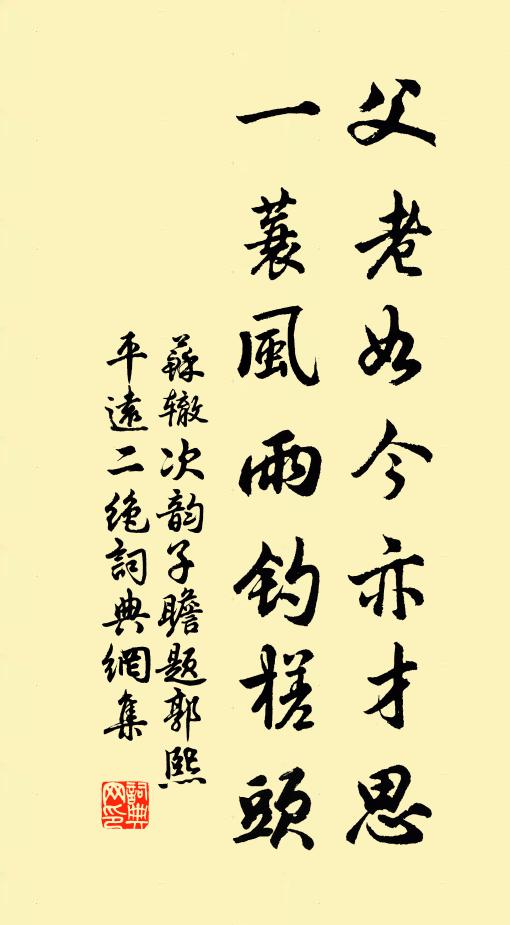 父老如今亦才思
一蓑風雨釣槎頭
蘇辙次韵子瞻题郭熙
平遠二绝詞典網集
詞典网印